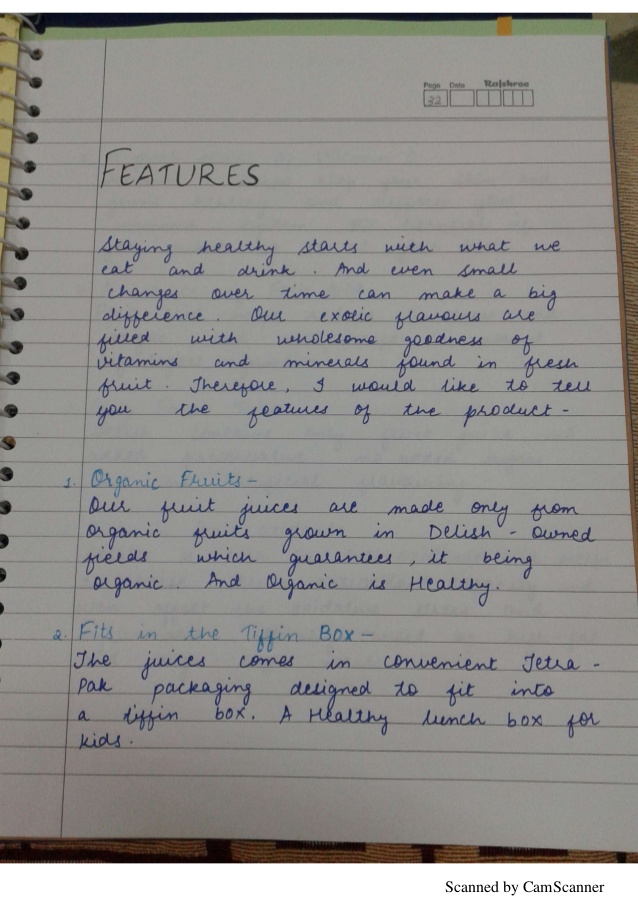 Page Date Rajshree
22
FEATURES
Staying healthy starts with what we
eat and drink. And even small
changes over time can make a big
difference. Our exotic flavours are
filled with wholesome goodness of
vitamins and minerals found in fresh
fruit. Therefore, I would like to tell
you the features of the product -
1. Organic Fruits -
Our fruit juices are made only from
organic fruits grown in Delish - owned
fields which guarantees, it being
organic. And Organic is Healthy.
2. Fits in the Tiffin Box -
The juices comes in convenient Tetra -
Pak packaging designed to fit into
a tiffin box. A Healthy lunch box for
kids.
Scanned by CamScanner